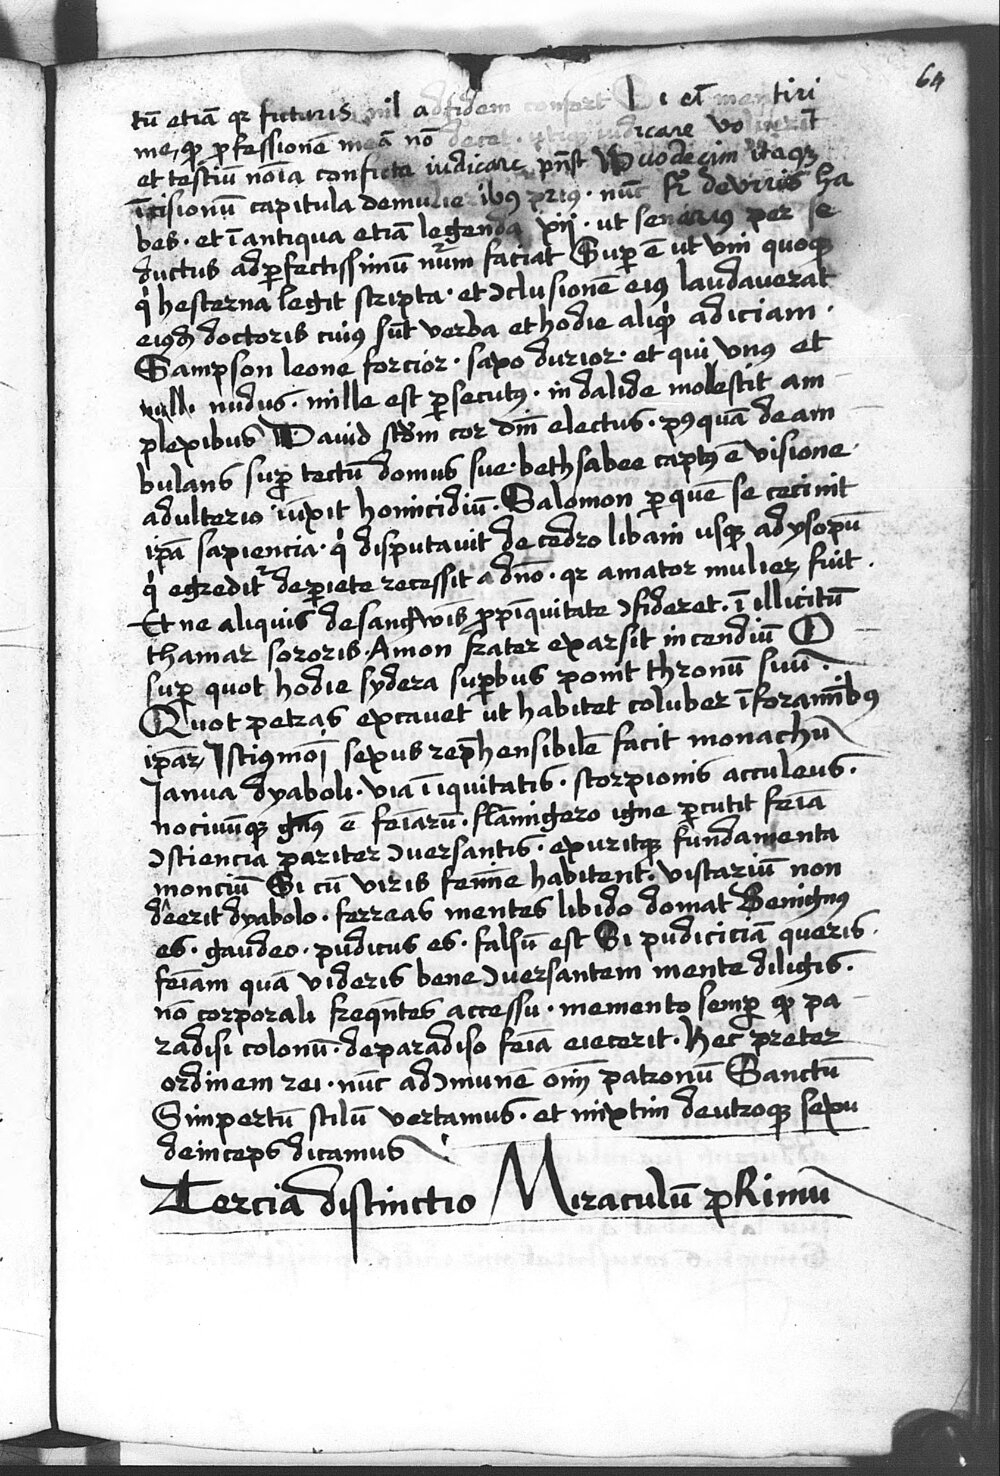 64
tū etiā qr futuris nil ad fidem confert Si eī mentiri
me, qꝫ ꝓfessionē meā nō decet iudicare voluerīt
et testiū noīa conficta iudicare pn̄st Duodecim itaqꝫ
īcisionū capitula de mulieribꝰ priꝰ · nūc de viris ha
bes · et ī antiqua etiā legenda xij · ut senariꝰ per se
ductus ad ꝑfectissimū nr̄m faciat Suꝑ ē ut vni quoqꝫ
q̇ hesterna legit scripta · et ɔclusionē eiꝰ laudaverat
eiꝰdē doctoris cuiꝰ sūt verba et hodie aliq̇ adiciam ·
Sampson leone forcior · saxo durior · et qui vnꝰ et
nudus · mille est ꝑsecutꝰ · in dalide molescit am
plexibus David scd̄m cor dn̄i electus · pꝰquā deam
bulans suꝑ tectū domus sue · bethsabee captꝰ ē visione ·
adulterio iūxit homicidiū · Salomon ꝑ quē se cecinit
ip̄a sapiencia · q̇ disputavit de cedro libani usqꝫ ad ysopū
q̇ egredit᷑ de pariete recessit a dn̄o · qr amator mulieꝝ fuit ·
Et ne aliquis de sangwīs ꝓpīquitate ɔfideret · ī illicitū
thamar sororis · Amon frater exarsit incendiū O
suꝑ quot hodie sydera suꝑbus ponit thronū suū ·
Quot petras excavet ut habitet coluber ī foramībꝰ
ip̄aꝝ Istiꝰmōi sexus rep̄hensibilē facit monachū
Ianua dyaboli · via īiquitatis · scorpionis acculeus ·
nociuūqꝫ genꝰ ē femīaꝝ · flāmigero igne ꝑcutit feīa
ɔsciencia pariter ɔversantis · exuritqꝫ fundamenta
monciū Si cū viris femīe habitent · viscariū non
deerit dyabolo · ferreas mentes libido domat Benignꝰ
es · gaudeo · pudicus es · falsū est Si pudiciciā queris ·
feīam quā videris bene ɔversantem mente diligis ·
nō corporali freqn̄tes accessu · memento semꝑ qꝫ pa
radisi colonū · de paradiso feīa eiecerit · Hec preter
ordinem rei · nūc ad ɔmunē oīm patronū Sanctū
Simpertū stilū vertamus · et mixtim de utroqꝫ sexu
deinceps dicamus
Tercia distinctio Miraculū pRimū